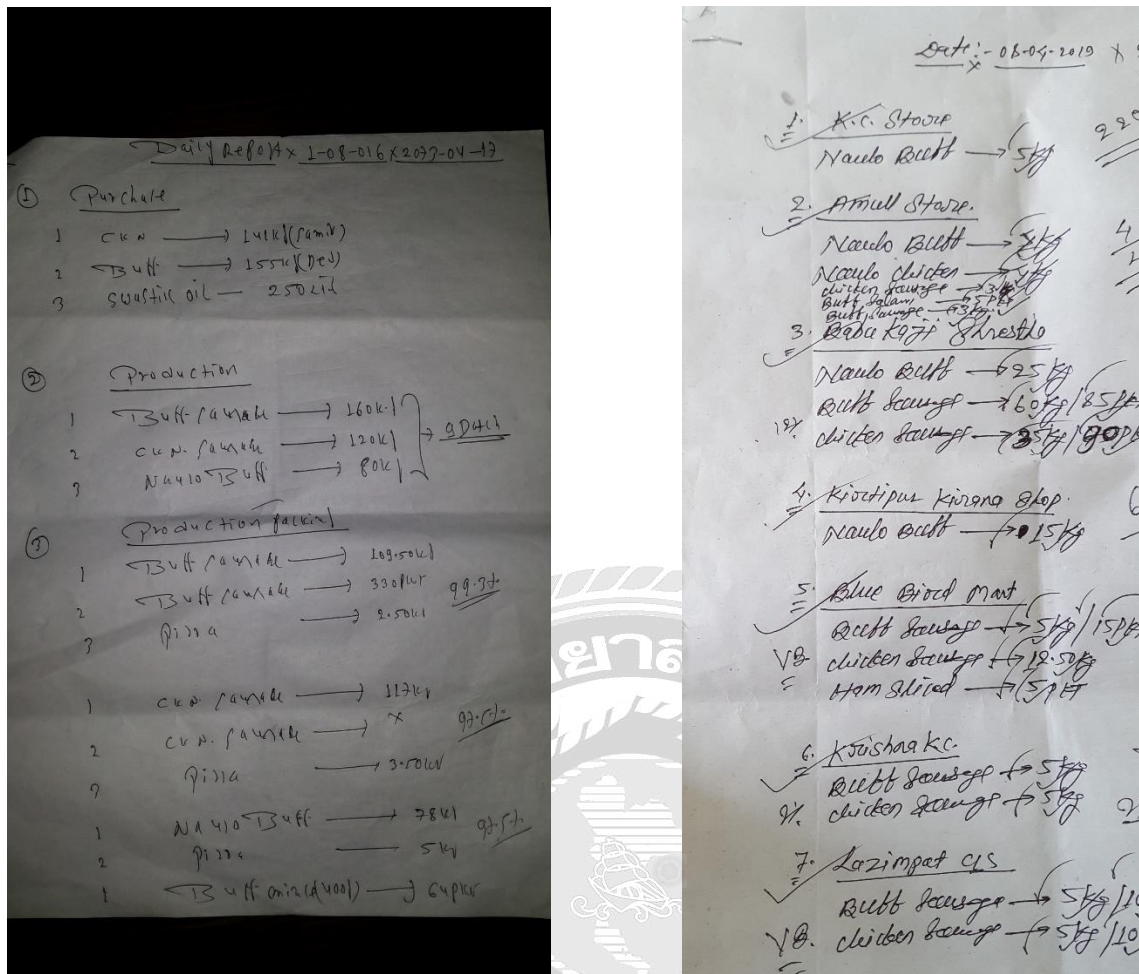 Daily Report x 1-08-016 x 2073-04-17
① Purchase
1 CKN → 141kg (Samir)
2 Buff → 155kg (Ded)
3 Swastik oil — 250
② Production
1 Buff sausage → 160kg
2 CKN. Sausage → 120kg → 9 Batch
3 Naulo Buff → 80kg
③ Production Packing
1 Buff sausage → 109.50kg
2 Buff sausage → 330pkt 99.3%
3 Pissa → 2.50kg
1 CKN. Sausage → 117kg
2 CKN. Sausage → x 97.5%
3 Pissa → 3.50kg
1 Naulo Buff → 78kg 97.5%
2 Pissa → 5kg
1 Buff → 64pkt
Date:- 08-04-2019 x
1. K.C. Store
Naulo Buff → 5kg
2. Amull Store.
Naulo Buff → kg
Naulo chicken → kg
chicken sausage → 3
Buff Salami → 5pkt
Buff Sausage → 3kg
3. Babu Kaji Shrestha
Naulo Buff → 25kg
Buff Sausage → 60kg/85pkt
chicken Sausage → 35kg/90pk
4. Kirtipur Kirana Shop.
Naulo Buff → 15kg
5. Blue Bird Mart
Buff Sausage → 5kg/15pkt
VB. chicken Sausage → 12.50kg
Ham Sliced → 5pkt
6. Krishna Kc.
Buff Sausage → 5kg
chicken Sausage → 5kg
7. Lazimpat C/S
Buff Sausage → 5kg/10
VB. chicken Sausage → 5kg/10